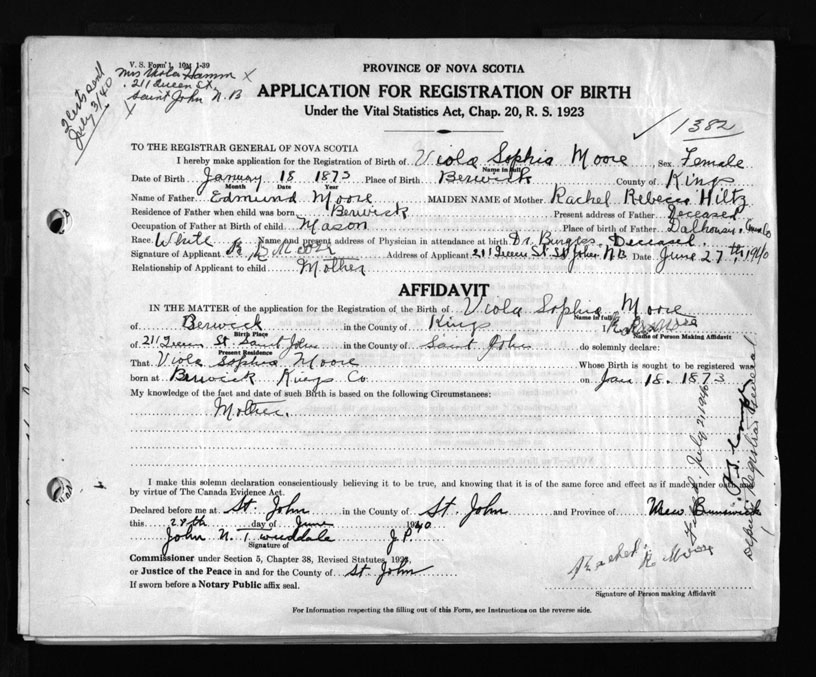 V. S. Form 1, 10M 1-39
Mrs Viola Hamm X
211 Queen St,
Saint John N.B
X
2 certs sent
July 3/40
PROVINCE OF NOVA SCOTIA
APPLICATION FOR REGISTRATION OF BIRTH
Under the Vital Statistics Act, Chap. 20, R. S. 1923
✓ 1382
TO THE REGISTRAR GENERAL OF NOVA SCOTIA
I hereby make application for the Registration of Birth of Viola Sophia Moore Sex Female
Name in full
Date of Birth January 18 1873 Place of Birth Berwick County of Kings
Month Date Year
Name of Father Edmund Moore MAIDEN NAME of Mother Rachel Rebecca Hiltz
Residence of Father when child was born Berwick Present address of Father Deceased
Occupation of Father at Birth of child Mason Place of birth of Father Dalhousie
Race White Name and present address of Physician in attendance at birth Dr. Burgess, Deceased.
Signature of Applicant R Moore Address of Applicant 211 Queen St. St John NB Date June 27th, 1940
Relationship of Applicant to child Mother
AFFIDAVIT
IN THE MATTER of the application for the Registration of the Birth of Viola Sophia Moore
Name in full
of Berwick in the County of Kings I, R Moore
Birth Place Name of Person Making Affidavit
of 211 Queen St Saint John in the County of Saint John do solemnly declare:
Present Residence
That Viola Sophia Moore Whose Birth is sought to be registered was
born at Berwick Kings Co on Jan 18. 1873
My knowledge of the fact and date of such Birth is based on the following Circumstances:
Mother.
I make this solemn declaration conscientiously believing it to be true, and knowing that it is of the same force and effect as if made under oath and
by virtue of The Canada Evidence Act.
Declared before me at St. John in the County of St. John and Province of New Brunswick
this 28th day of June 1940
John N. Twuddale J P
Signature of
Commissioner under Section 5, Chapter 38, Revised Statutes, 1923,
or Justice of the Peace in and for the County of St. John
If sworn before a Notary Public affix seal.
Rachel R. Moore
Signature of Person making Affidavit
For Information respecting the filling out of this Form, see Instructions on the reverse side.
Filed July 2, 1940
Deputy Registrar General